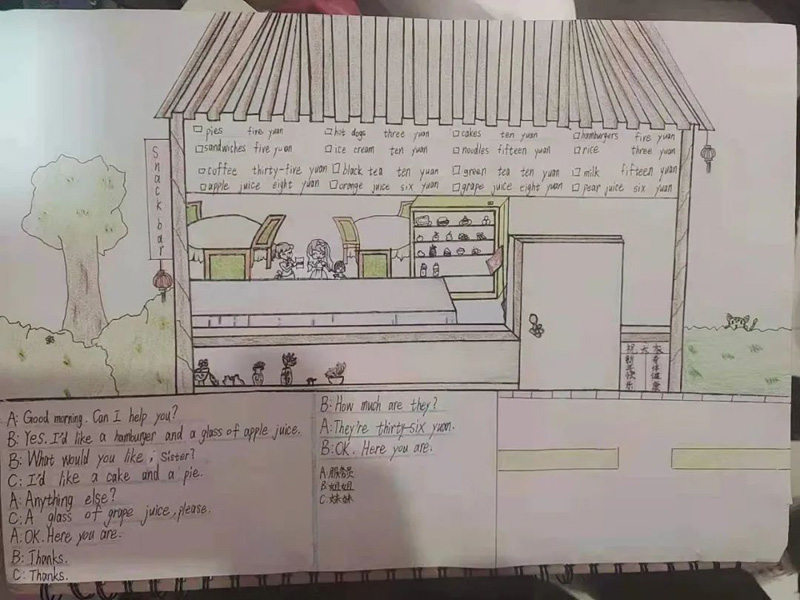 □pies five yuan □hot dogs three yuan □cakes ten yuan □hamburgers five yuan
□sandwiches five yuan □ice cream ten yuan □noodles fifteen yuan □rice three yuan
□coffee thirty-five yuan □black tea ten yuan □green tea ten yuan □milk fifteen yuan
□apple juice eight yuan □orange juice six yuan □grape juice eight yuan □pear juice six yuan
Snack bar
A: Good morning. Can I help you?
B: Yes. I'd like a hamburger and a glass of apple juice.
B: What would you like, Sister?
C: I'd like a cake and a pie.
A: Anything else?
C: A glass of grape juice, please.
A: OK. Here you are.
B: Thanks.
C: Thanks.
B: How much are they?
A: They're thirty-six yuan.
B: OK. Here you are.
A: 服务员
B: 姐姐
C: 妹妹